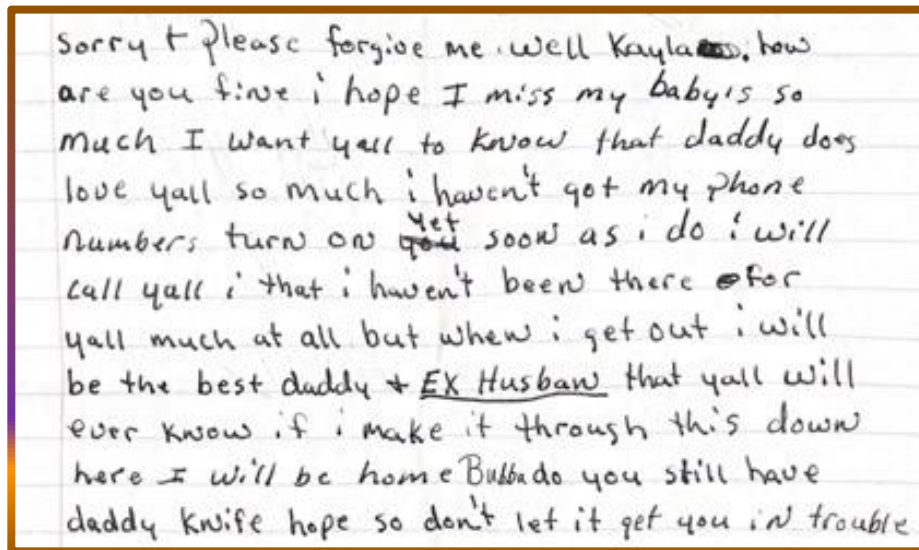 sorry + please forgive me. well Kayla. how
are you fine i hope I miss my baby's so
much I want yall to know that daddy does
love yall so much i haven't got my phone
numbers turn on yet soon as i do i will
call yall i that i haven't been there for
yall much at all but when i get out i will
be the best daddy + EX Husban that yall will
ever know if i make it through this down
here I will be home Bubba do you still have
daddy knife hope so don't let it get you in trouble